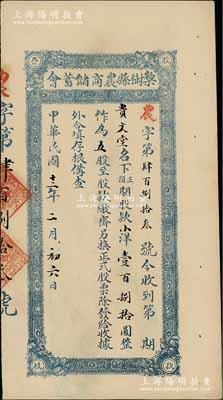 上海陽明拍賣
存股
農字第肆百捌拾叁號
會蓄儲商農縣樹梨
農字第肆百捌拾叁號今收到第 期
貴文堂名下預期股款小洋壹百捌拾圓整
正
作為五股至股款繳齊另換正式股票除發給收據
外合并存根備查
中華民國十一年二月初六日
根股
上海陽明拍賣